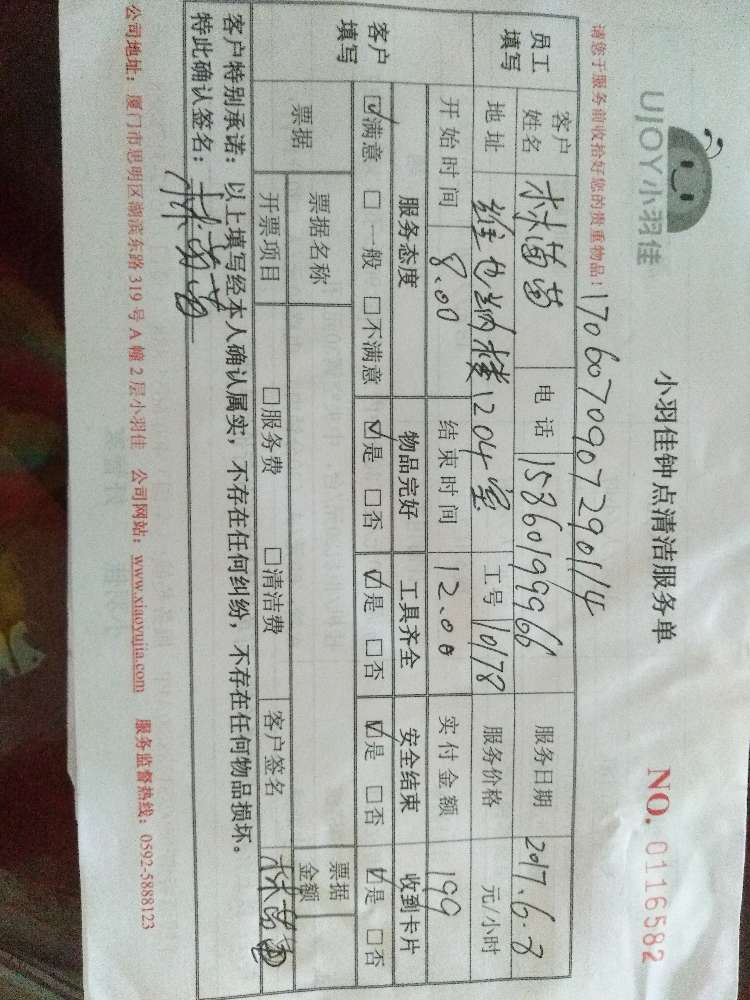 UJOY小羽佳
小羽佳钟点清洁服务单
NO. 0116582
请您于服务前收拾好您的贵重物品！1706070907290114
员工填写 客户姓名 林苗苗 电话 15860199966 服务日期 2017.6.8
地址 维也纳楼1204室 工号 10178 服务价格 元/小时
客户填写 开始时间 8.00 结束时间 12.00 实付金额 199
服务态度 物品完好 工具齐全 安全结束 收到卡片
☑满意 □一般 □不满意 ☑是 □否 ☑是 □否 ☑是 □否 ☑是 □否
票据 票据名称 票据金额
开票项目 □服务费 □清洁费 客户签名 林苗苗
客户特别承诺：以上填写经本人确认属实，不存在任何纠纷，不存在任何物品损坏。
特此确认签名：林苗苗
公司地址：厦门市思明区湖滨东路319号A幢2层小羽佳 公司网站：www.xiaoyujia.com 服务监督热线：0592-5888123